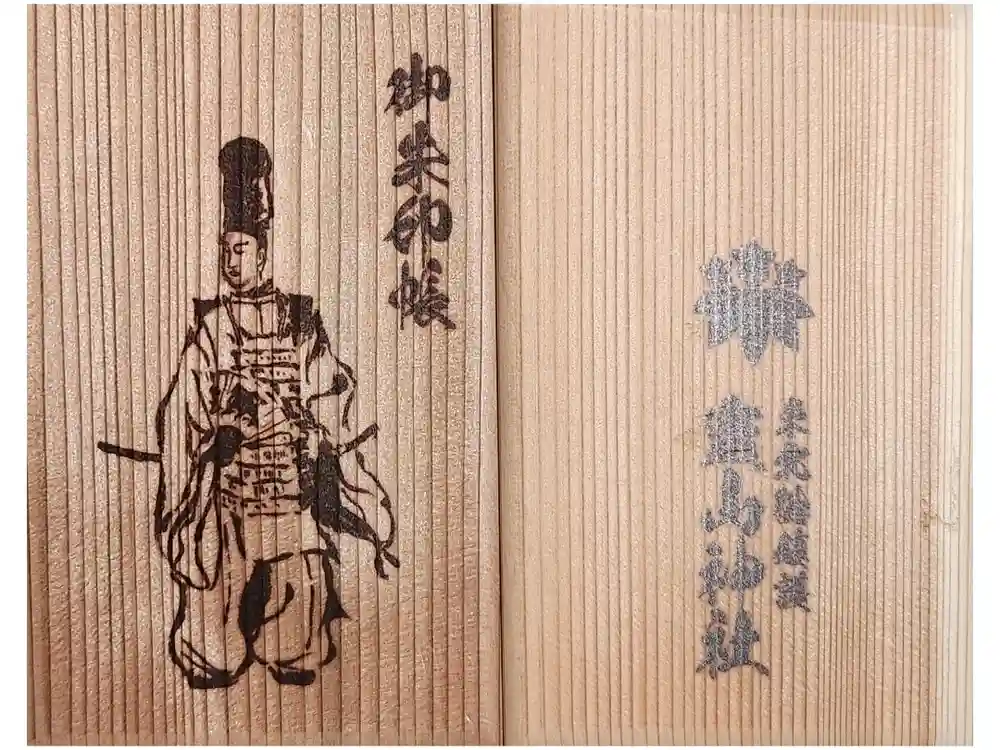 御朱印帳
霊山神社